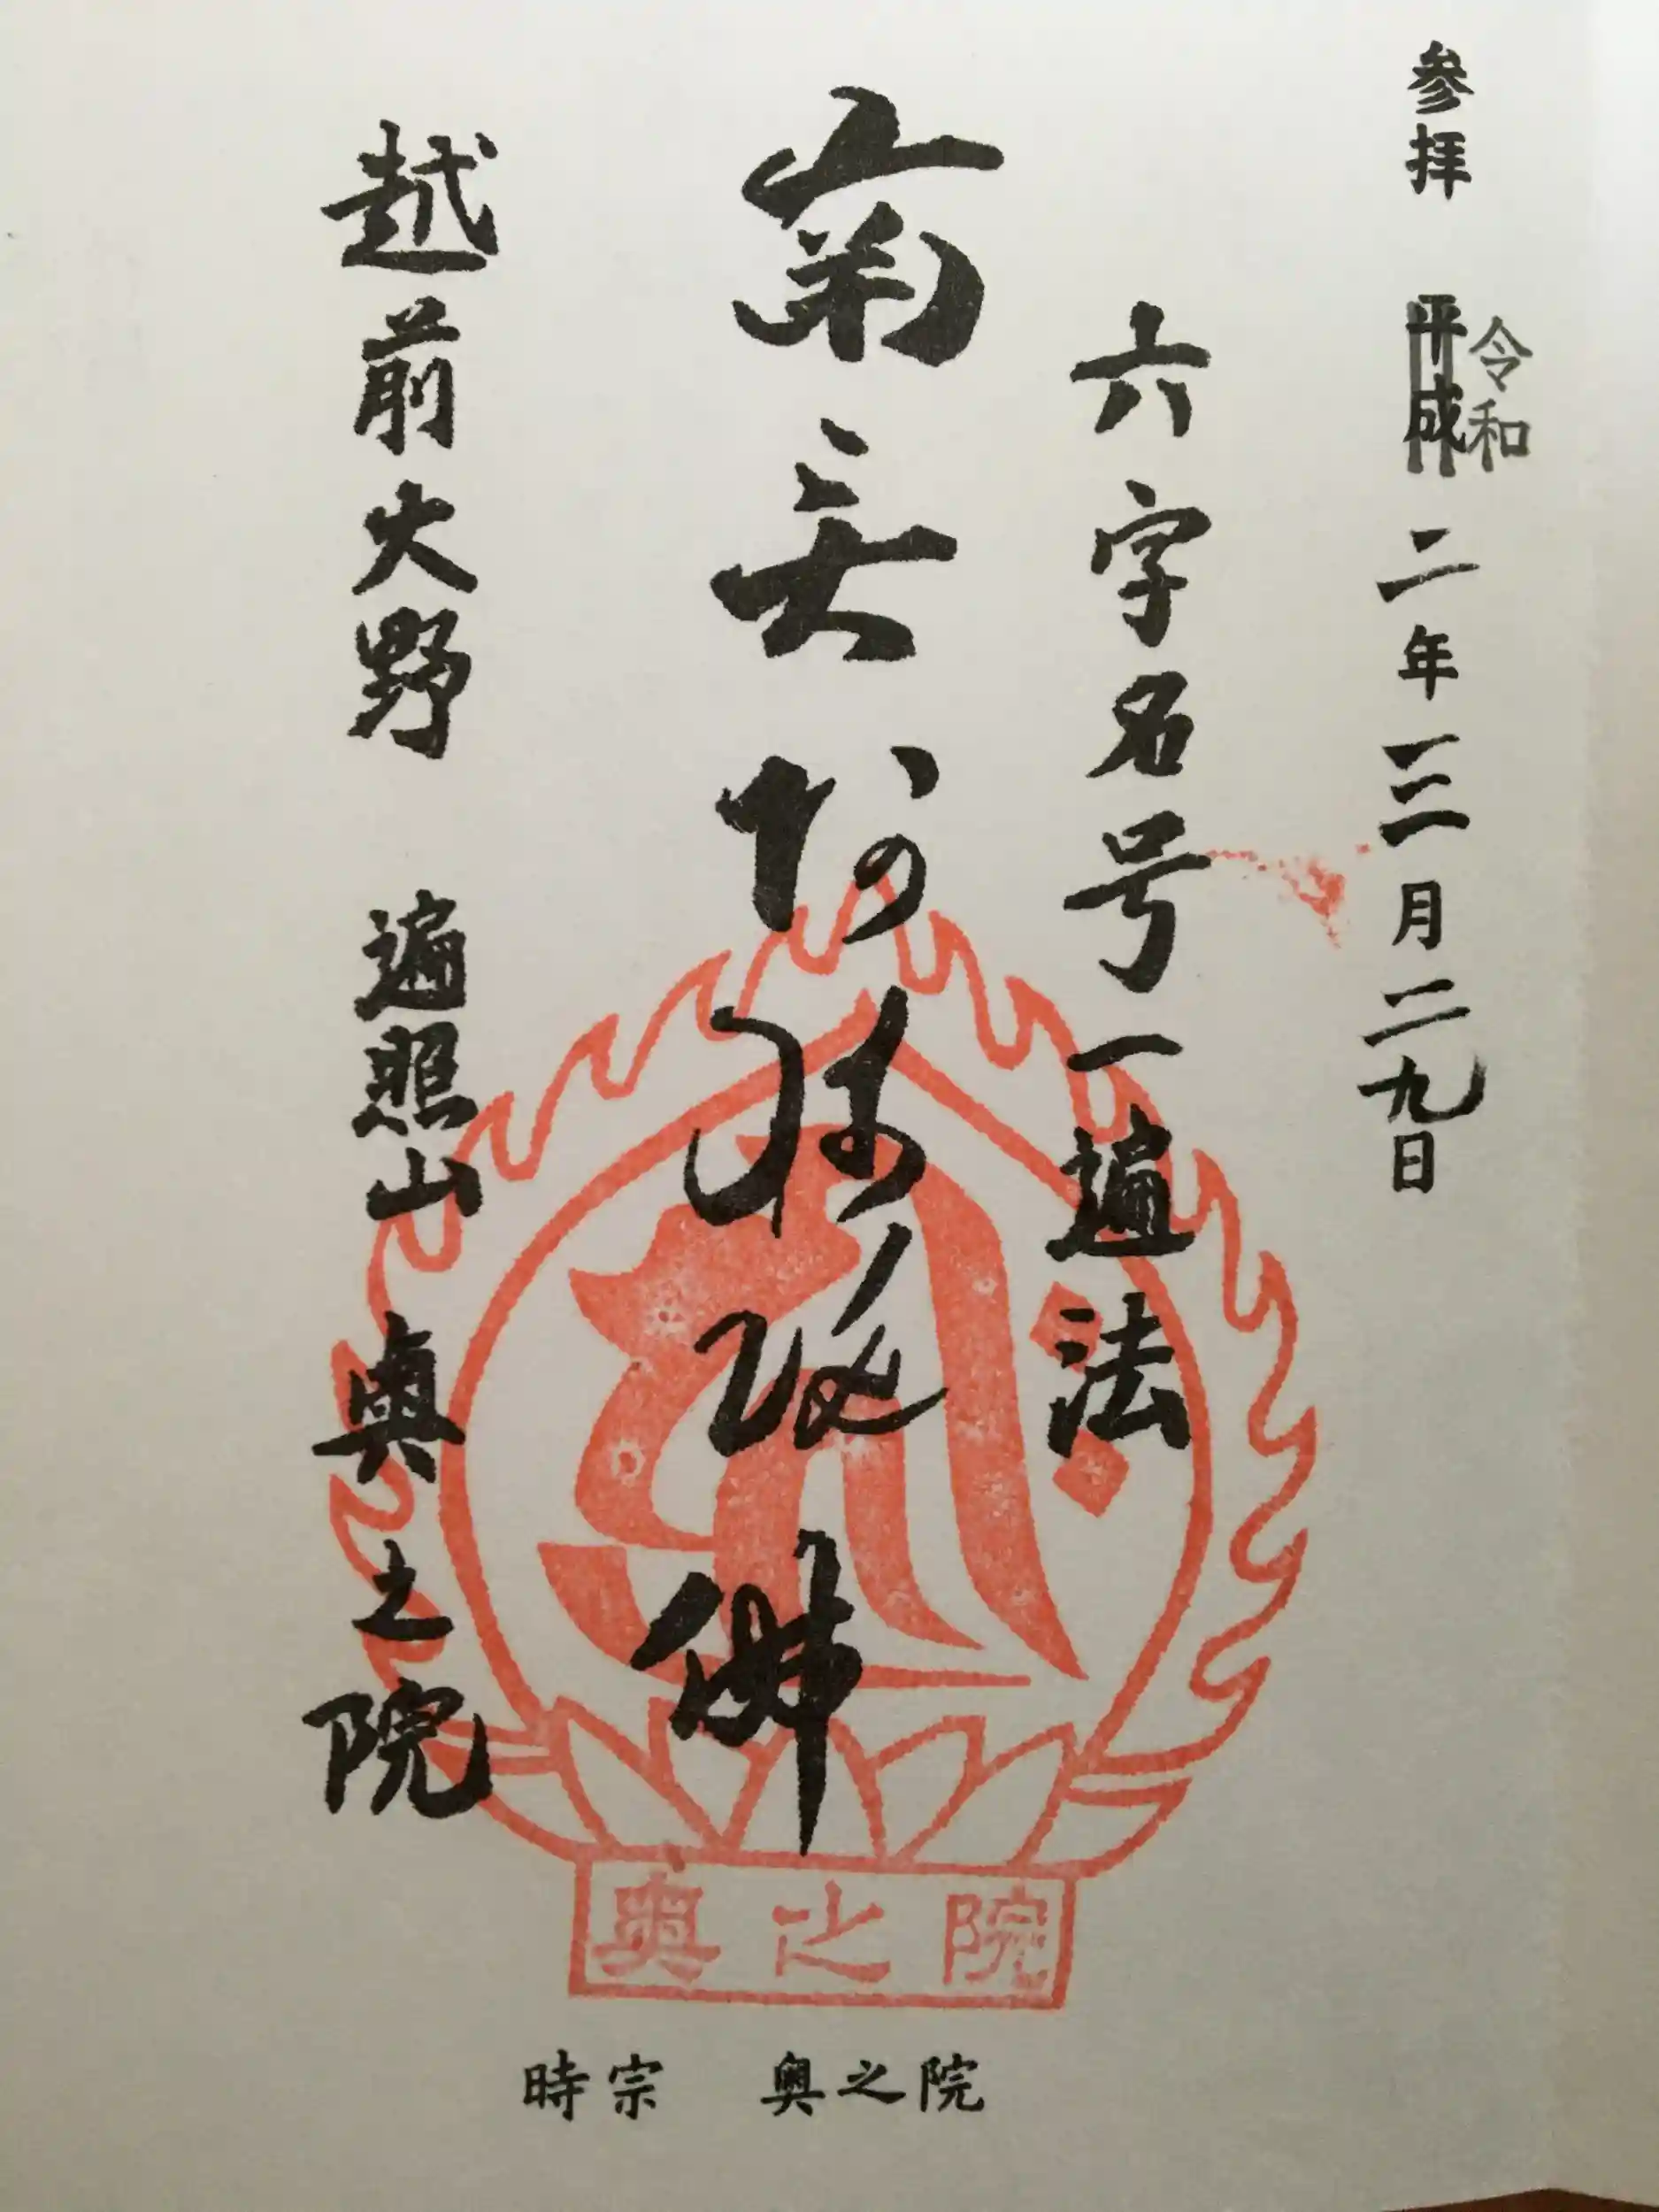 参拝 平成 令和 二年 三月 二九日
六字名号一遍法
南無阿弥陀佛
越前大野 遍照山 奥之院
奥之院
時宗 奥之院